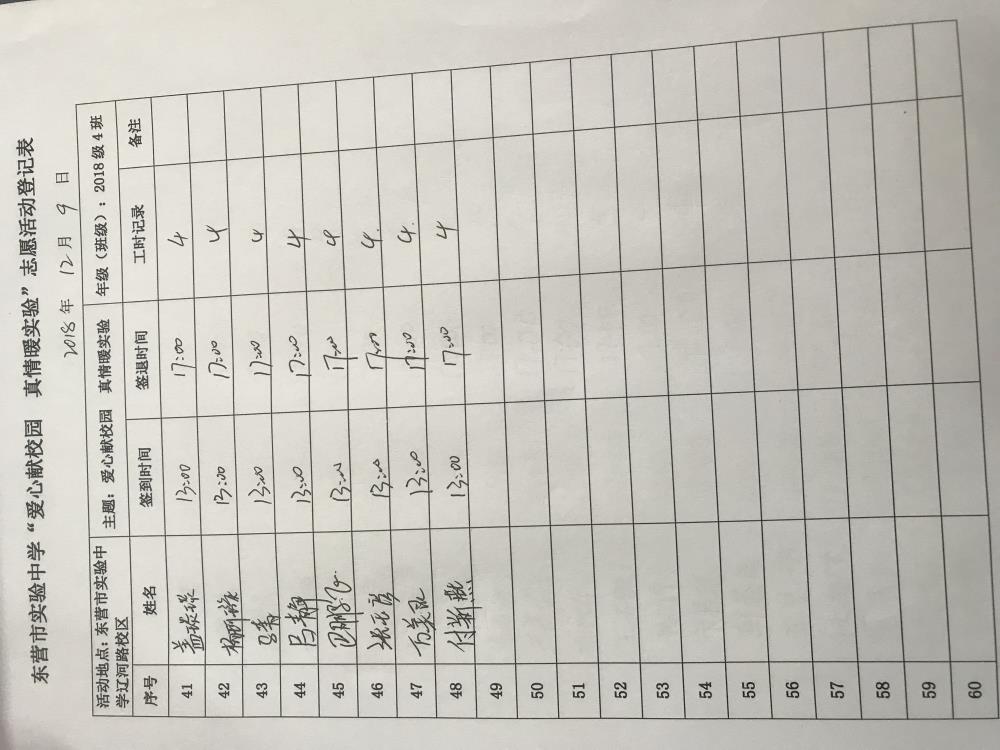 东营市实验中学“爱心献校园 真情暖实验”志愿活动登记表
2018年 12月 9 日
活动地点：东营市实验中学辽河路校区 主题：爱心献校园 真情暖实验 年级（班级）：2018级4班
序号 姓名 签到时间 签退时间 工时记录 备注
41 13:00 17:00 4
42 13:00 17:00 4
43 13:00 17:00 4
44 吕静 13:00 17:00 4
45 13:00 17:00 4
46 13:00 17:00 4
47 13:00 17:00 4
48 付新燕 13:00 17:00 4
49
50
51
52
53
54
55
56
57
58
59
60